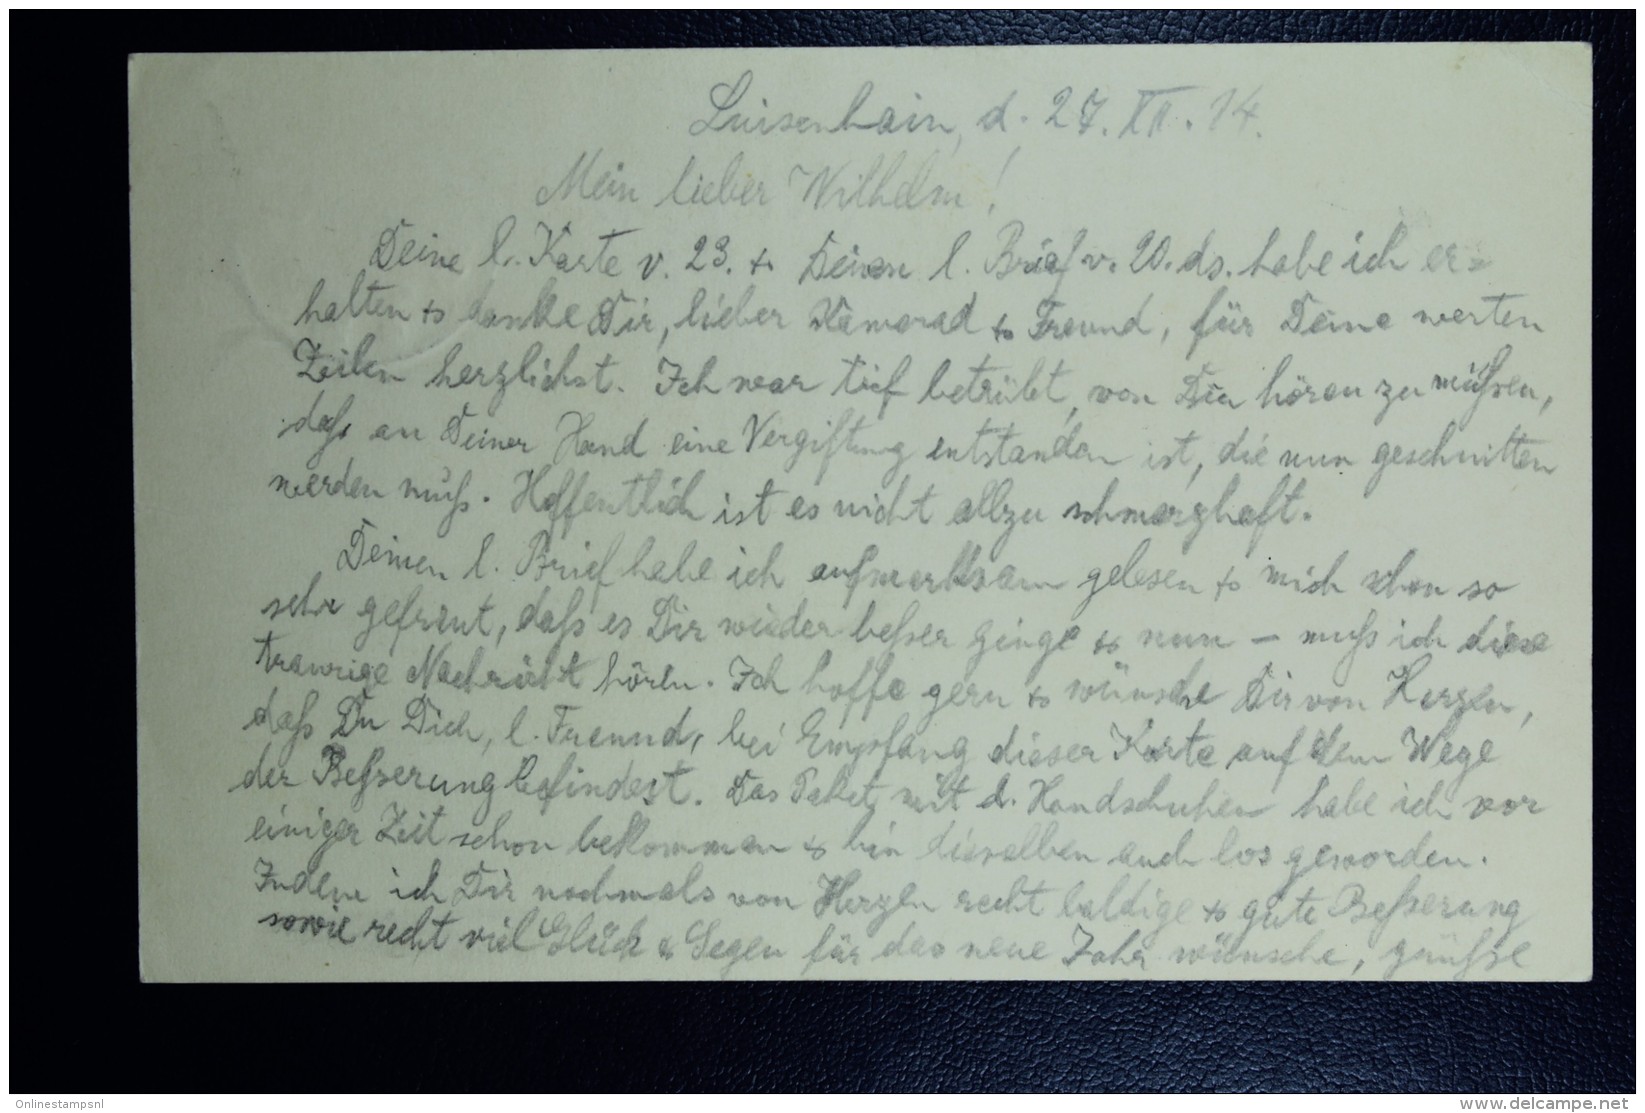 Luisenhain, d. 27. XII. 14.
Mein lieber Wilhelm!
Deine l. Karte v. 23. & Deinen l. Brief v. 20. ds. habe ich er=
halten & danke Dir, lieber Kamerad & Freund, für Deine werten
Zeilen herzlichst. Ich war tief betrübt, von Dir hören zu müßen,
daß an Deiner Hand eine Vergiftung entstanden ist, die nun geschnitten
werden muß. Hoffentlich ist es nicht allzu schmerzhaft.
Deinen l. Brief habe ich aufmerksam gelesen & mich schon so
sehr gefreut, daß es Dir wieder beßer ginge & nun – muß ich diese
traurige Nachricht hören. Ich hoffe gern & wünsche Dir von Herzen,
daß Du Dich, l. Freund, bei Empfang dieser Karte auf dem Wege
der Beßerung befindest. Das Paket mit d. Handschuhen habe ich vor
einiger Zeit schon bekommen & bin dieselben auch los geworden.
Indem ich Dir nochmals von Herzen recht baldige & gute Beßerung
sowie recht viel Glück & Segen für das neue Jahr wünsche, grüße
Onlinestampsnl
delcampe.net